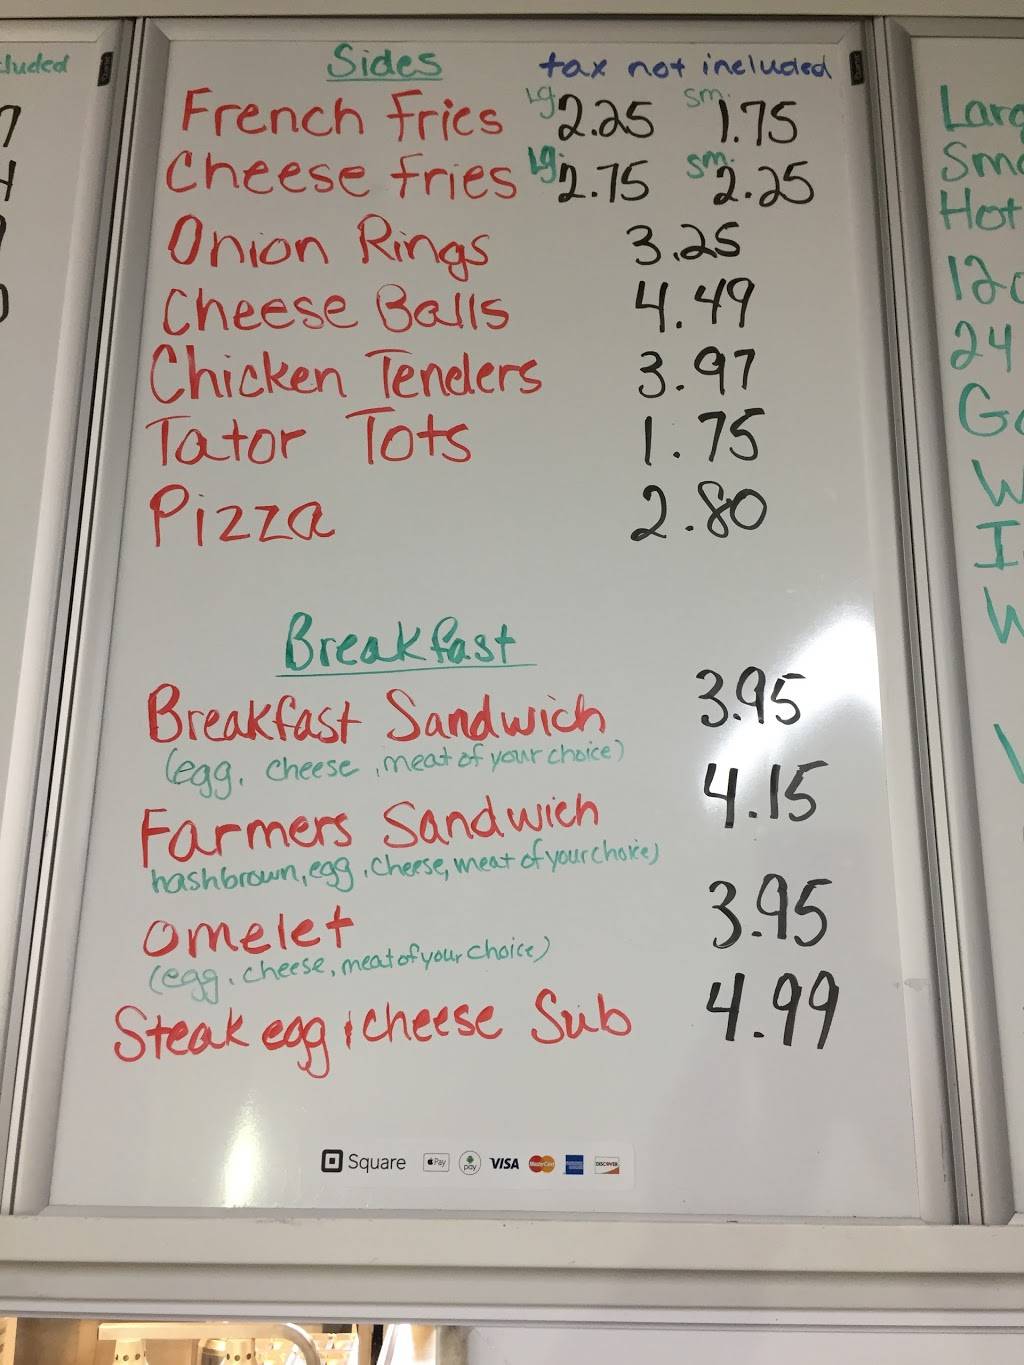 Sides tax not included
French fries Lg 2.25 sm. 1.75
Cheese fries Lg. 2.75 sm. 2.25
Onion Rings 3.25
Cheese Balls 4.49
Chicken Tenders 3.97
Tator Tots 1.75
Pizza 2.80
Breakfast
Breakfast Sandwich 3.95
(egg, cheese, meat of your choice)
Farmers Sandwich 4.15
hashbrown, egg, cheese, meat of your choice)
Omelet 3.95
(egg, cheese, meat of your choice)
Steak egg & cheese Sub 4.99
Square Pay pay VISA MasterCard DISCOVER
Hot
24